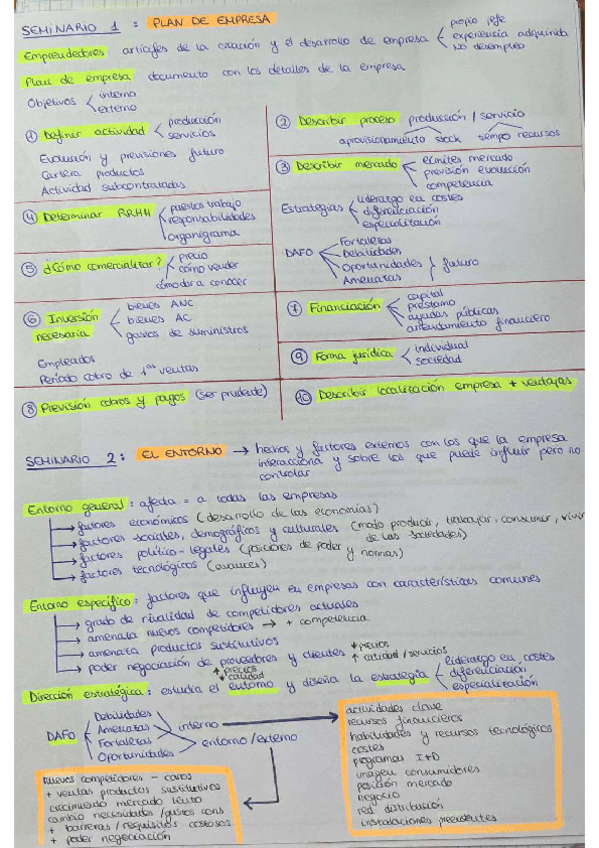 SEMINARIO 1 : PLAN DE EMPRESA
Emprendedores: artífices de la creación y el desarrollo de empresa
propio jefe
experiencia adquirida
No desempleo
Plan de empresa: documento con los detalles de la empresa
Objetivos
interno
externo
① Definir actividad
producción
servicios
Evolución y previsiones futuro
Cartera productos
Actividad subcontratadas
② Describir proceso producción / servicio
aprovisionamiento stock tiempo recursos
③ Describir mercado
límites mercado
previsión evolución
competencia
Estrategias
liderazgo en costes
diferenciación
especialización
DAFO
Fortalezas
Debilidades
Oportunidades
Amenazas
futuro
④ Determinar RRHH
puestos trabajo
responsabilidades
organigrama
⑤ ¿Cómo comercializar?
precio
cómo vender
cómo dar a conocer
⑥ Inversión necesaria
bienes ANC
bienes AC
gastos de suministros
Empleados
Período cobro de 1ªs ventas
⑦ Financiación
capital
préstamo
ayudas públicas
arrendamiento financiero
⑧ Previsión cobros y pagos (ser prudente)
⑨ Forma jurídica
individual
sociedad
⑩ Describir localización empresa + ventajas
SEMINARIO 2: EL ENTORNO → hechos y factores externos con los que la empresa
interacciona y sobre los que puede influir pero no
controlar
Entorno general: afecta = a todas las empresas
factores económicos (desarrollo de las economías)
factores sociales, demográficos y culturales (modo producir, trabajar, consumir, vivir
de las sociedades)
factores político-legales (posiciones de poder y normas)
factores tecnológicos (avances)
Entorno específico: factores que influyen en empresas con características comunes
grado de rivalidad de competidores actuales
amenaza nuevos competidores → + competencia
amenaza productos sustitutivos
poder negociación de proveedores y clientes
↓ precios
↑ calidad / servicios
↑ precios
↓ calidad
Dirección estratégica: estudia el entorno y diseña la estrategia
liderazgo en costes
diferenciación
especialización
DAFO
Debilidades
Amenazas
Fortalezas
Oportunidades
interno
entorno/externo
actividades clave
recursos financieros
habilidades y recursos tecnológicos
costes
programas I+D
imagen consumidores
posición mercado
negocio
red distribución
instalaciones preexistentes
nuevos competidores - caros
+ ventas productos sustitutivos
crecimiento mercado lento
cambio necesidades/gustos cons
+ barreras/requisitos costosos
+ poder negociación